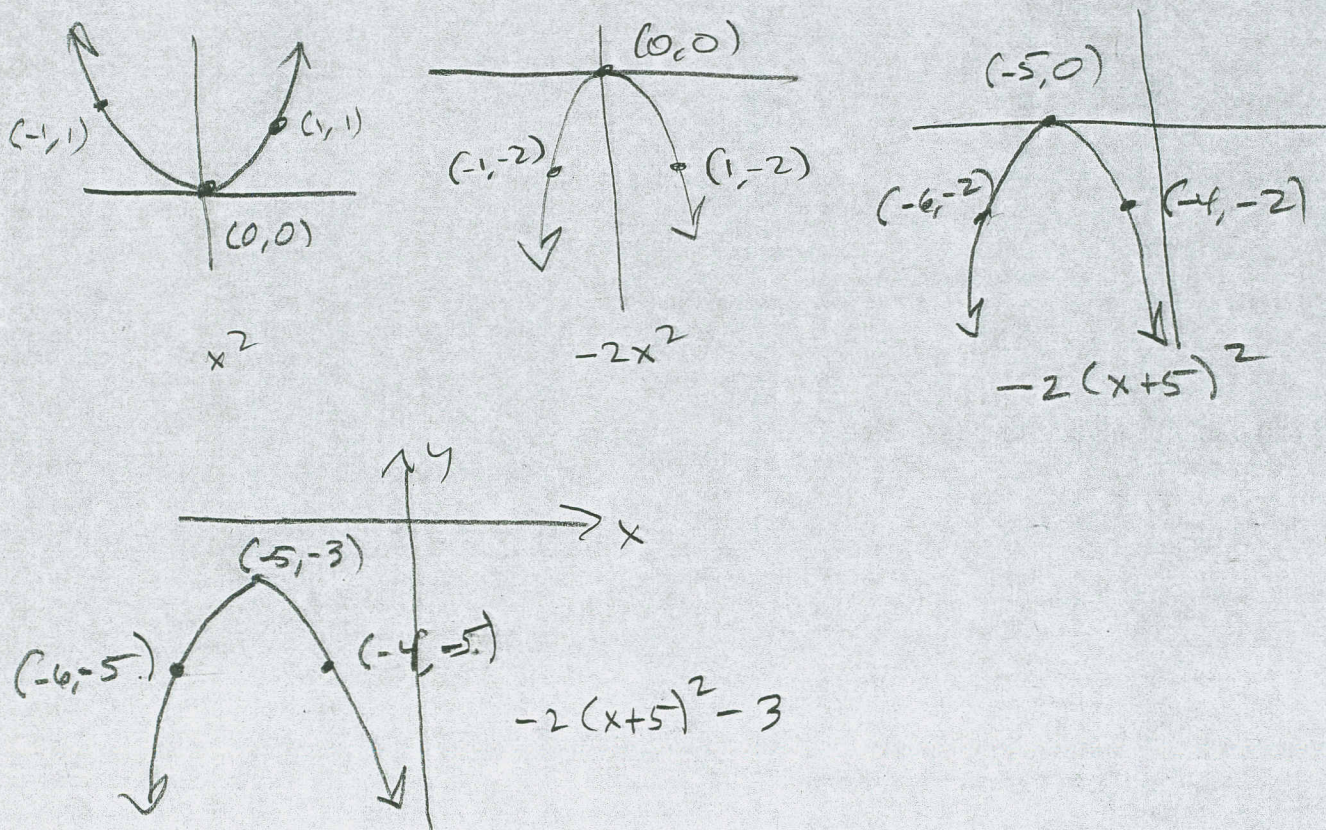 (-1,1) (1,1)
(0,0)
x²
(0,0)
(-1,-2) (1,-2)
-2x²
(-5,0)
(-6,-2) (-4,-2)
-2(x+5)²
y
x
(-5,-3)
(-6,-5) (-4,-5)
-2(x+5)²-3